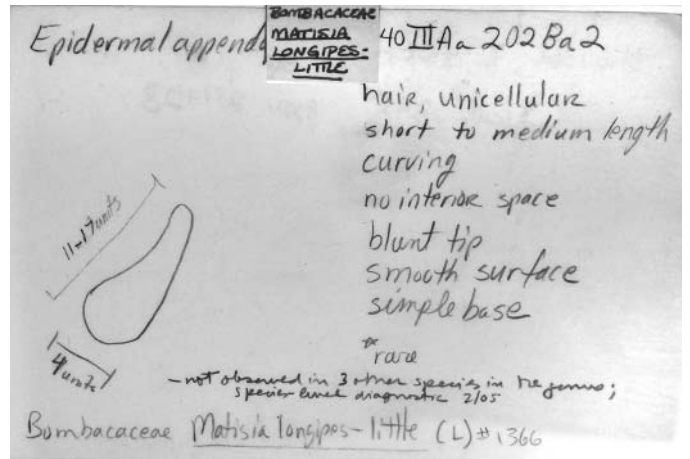 Epidermal append
BOMBACACEAE
MATISIA
LONGIPES-
LITTLE
40 III Aa 202 Ba2
hair, unicellular
short to medium length
curving
no interior space
blunt tip
smooth surface
simple base
* rare
11-17 units
4 units
- not observed in 3 other species in the genus;
species-level diagnostic 2/05
Bombacaceae Matisia longipes-little (L) #1366